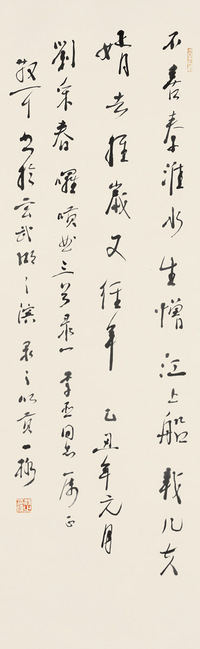 不喜秦淮水生憎江上船載儿夫
婿去经歲又经年 乙丑年元月
劉采春囉嗊曲三首录一 李 同志属正
牧可书於玄武湖之滨录之以贡一粲